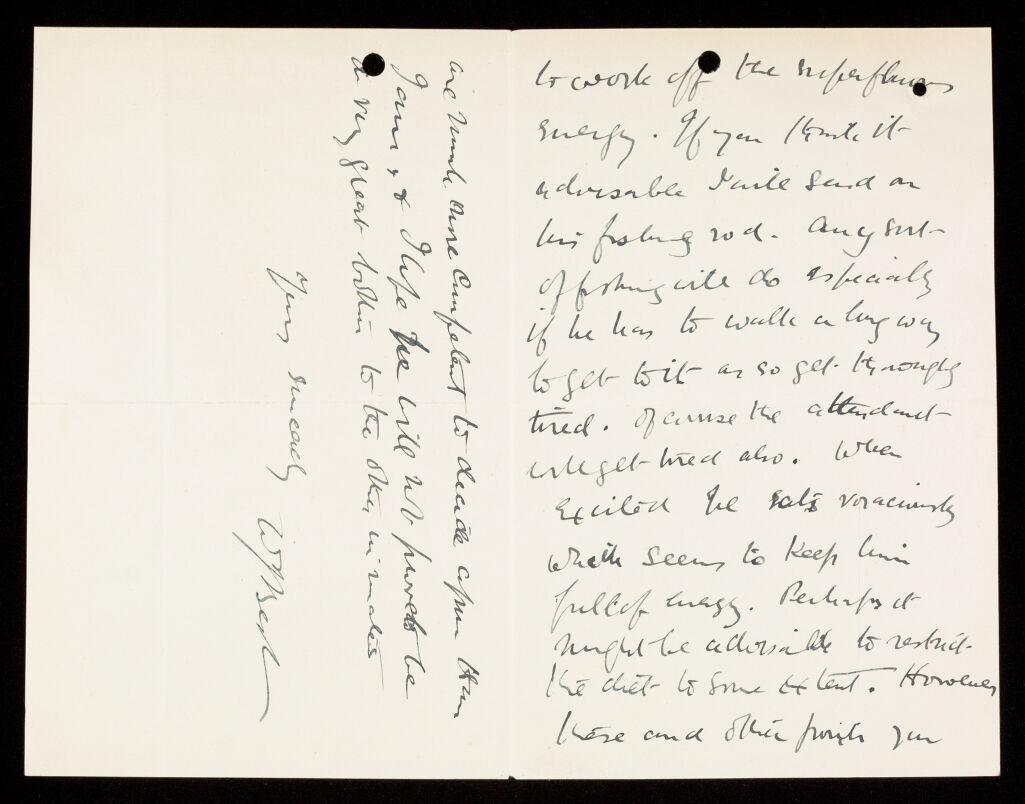 to work off the superfluous
energy. If you think it
advisable I will send on
his fishing rod. Any sort
of fishing will do especially
if he has to walk a long way
to get to it or so get thoroughly
tired. Of course the attendant
will get tired also. When
excited he eats voraciously
which seems to keep him
full of energy. Perhaps it
might be advisable to restrict
the diet to some extent. However
these and other points you
are much more competent to decide upon than
I am, & I hope he will not prove to be
a very great bother to the other inmates
Yours sincerely